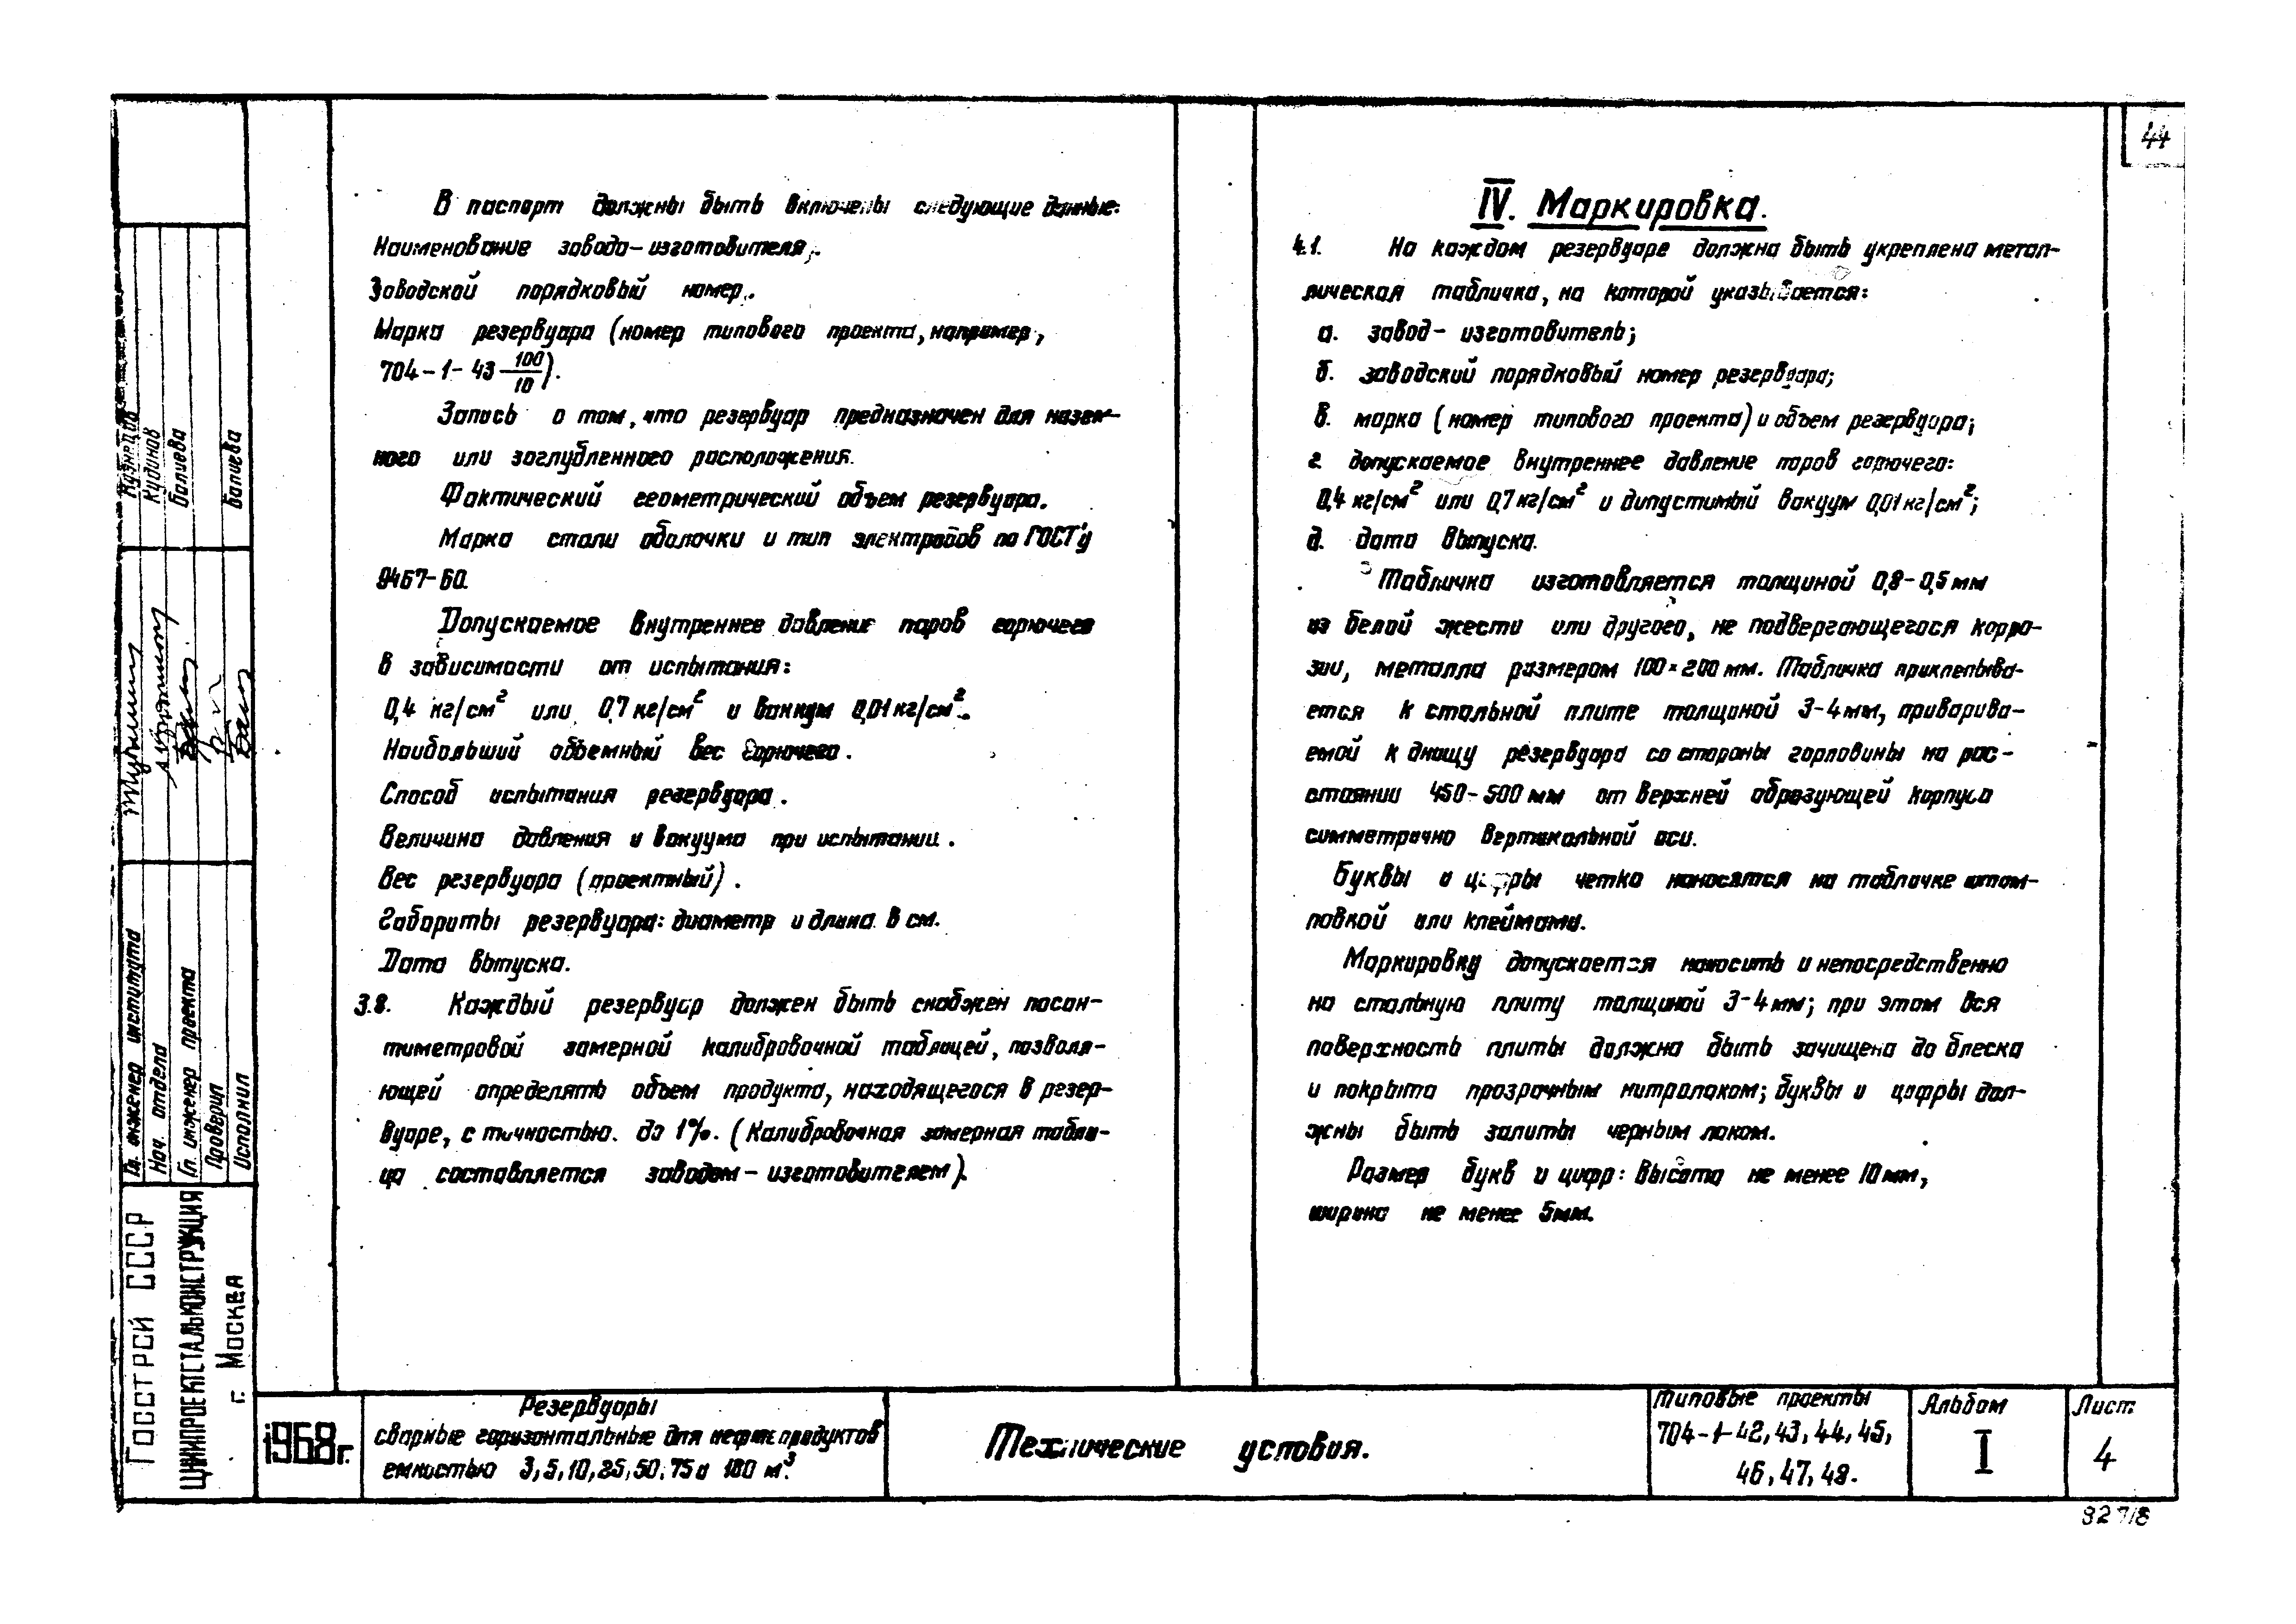 44
В паспорт должны быть включены следующие данные:
Наименование завода-изготовителя.
Заводской порядковый номер.
Марка резервуара (номер типового проекта, например,
704-1-43 100/10).
Запись о том, что резервуар предназначен для назем-
ного или заглубленного расположения.
Фактический геометрический объем резервуара.
Марка стали оболочки и тип электродов по ГОСТ'у
9467-60.
Допускаемое внутреннее давление паров горючего
в зависимости от испытания:
0,4 кг/см² или 0,7 кг/см² и вакуум 0,01 кг/см².
Наибольший объемный вес горючего.
Способ испытания резервуара.
Величина давления и вакуума при испытании.
Вес резервуара (проектный).
Габариты резервуара: диаметр и длина в см.
Дата выпуска.
3.8. Каждый резервуар должен быть снабжен посан-
тиметровой замерной калибровочной таблицей, позволя-
ющей определять объем продукта, находящегося в резер-
вуаре, с точностью до 1%. (Калибровочная замерная табли-
ца составляется заводом-изготовителем).
IV. Маркировка.
4.1. На каждом резервуаре должна быть укреплена метал-
лическая табличка, на которой указывается:
а. завод-изготовитель;
б. заводский порядковый номер резервуара;
в. марка (номер типового проекта) и объем резервуара;
г. допускаемое внутреннее давление паров горючего:
0,4 кг/см² или 0,7 кг/см² и допустимый вакуум 0,01 кг/см²;
д. дата выпуска.
Табличка изготовляется толщиной 0,8-0,5 мм
из белой жести или другого, не подвергающегося корро-
зии, металла размером 100×200 мм. Табличка приклепыва-
ется к стальной плите толщиной 3-4 мм, приварива-
емой к днищу резервуара со стороны горловины на рас-
стоянии 450-500 мм от верхней образующей корпуса
симметрично вертикальной оси.
Буквы и цифры четко наносятся на табличке штам-
повкой или клеймами.
Маркировку допускается наносить и непосредственно
на стальную плиту толщиной 3-4 мм; при этом вся
поверхность плиты должна быть зачищена до блеска
и покрыта прозрачным нитролаком; буквы и цифры дол-
жны быть залиты черным лаком.
Размер букв и цифр: высота не менее 10 мм,
ширина не менее 5 мм.
Гл. инженер института Кузнецов
Нач. отдела Кудинов
Гл. инженер проекта Балиева
Проверил
Исполнил Балиева
Госстрой СССР
ЦНИИПРОЕКТСТАЛЬКОНСТРУКЦИЯ
г. Москва
1968г.
Резервуары
сварные горизонтальные для нефтепродуктов
емкостью 3,5,10,25,50,75 и 100 м³.
Технические условия.
Типовые проекты
704-1-42,43,44,45,
46,47,48.
Альбом
I
Лист
4